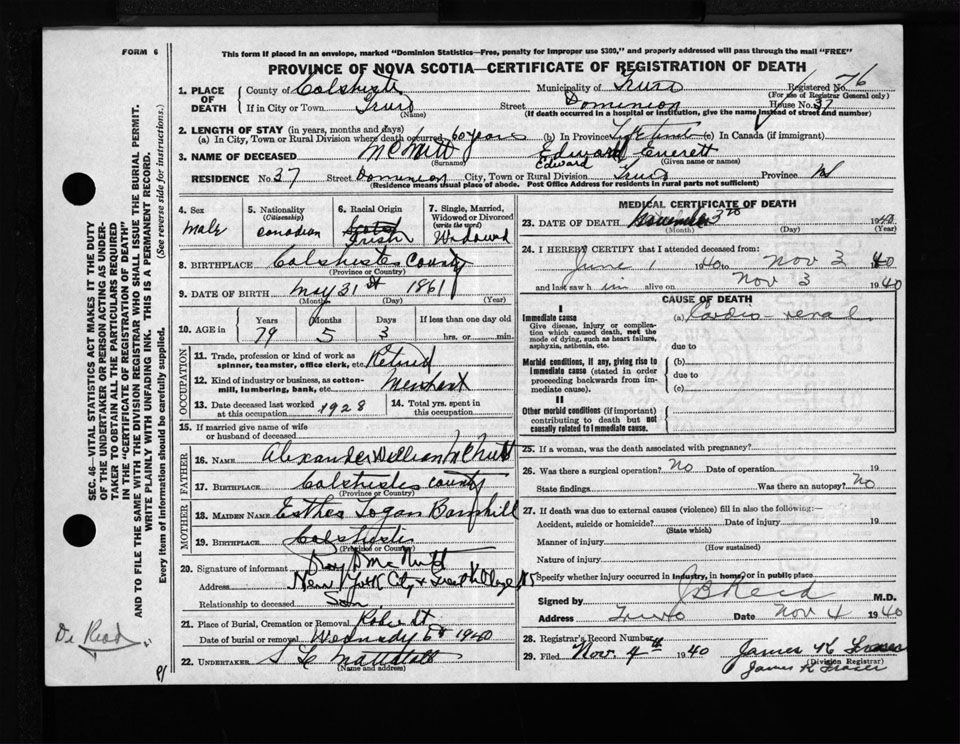 FORM 6
This form if placed in an envelope, marked "Dominion Statistics—Free, penalty for improper use $300," and properly addressed will pass through the mail "FREE"
PROVINCE OF NOVA SCOTIA—CERTIFICATE OF REGISTRATION OF DEATH
SEC. 46—VITAL STATISTICS ACT MAKES IT THE DUTY
OF THE UNDERTAKER OR PERSON ACTING AS UNDER-
TAKER TO OBTAIN ALL THE PARTICULARS REQUIRED
IN THE "CERTIFICATE OF REGISTRATION OF DEATH"
AND TO FILE THE SAME WITH THE DIVISION REGISTRAR WHO SHALL ISSUE THE BURIAL PERMIT.
WRITE PLAINLY WITH UNFADING INK. THIS IS A PERMANENT RECORD.
Every item of information should be carefully supplied. (See reverse side for instructions.)
1. PLACE OF DEATH County of Colchester Municipality of Truro Registered No. 76
(For use of Registrar General only)
If in City or Town Truro (Name) Street Dominion House No. 37
(If death occurred in a hospital or institution, give the name instead of street and number)
2. LENGTH OF STAY (in years, months and days)
(a) In City, Town or Rural Division where death occurred 60 years (b) In Province Lifetime (c) In Canada (if immigrant)
3. NAME OF DECEASED McNutt Edward Everett
Edward
(Surname) (Given name or names)
RESIDENCE No. 37 Street Dominion City, Town or Rural Division Truro Province NS
(Residence means usual place of abode. Post Office Address for residents in rural parts not sufficient)
4. Sex male
5. Nationality (Citizenship) Canadian
6. Racial Origin Scotch Irish
7. Single, Married, Widowed or Divorced (write the word) Widowed
8. BIRTHPLACE Colchester County
(Province or Country)
9. DATE OF BIRTH May 31st 1861
(Month) (Day) (Year)
10. AGE in Years 79 Months 5 Days 3 If less than one day old
hrs. or min.
OCCUPATION
11. Trade, profession or kind of work as spinner, teamster, office clerk, etc. Retired
12. Kind of industry or business, as cotton-mill, lumbering, bank, etc. Merchant
13. Date deceased last worked at this occupation 1928
14. Total yrs. spent in this occupation
15. If married give name of wife or husband of deceased
FATHER
16. NAME Alexander William McNutt
17. BIRTHPLACE Colchester County
(Province or Country)
MOTHER
18. MAIDEN NAME Esther Logan Barnhill
19. BIRTHPLACE Colchester
(Province or Country)
20. Signature of informant Roy D McNutt
Address New York City & Great Village NS
Relationship to deceased Son
21. Place of Burial, Cremation or Removal Robie St
Date of burial or removal Wednesday 6th 1940
22. UNDERTAKER S L Mattatall
(Name and address)
MEDICAL CERTIFICATE OF DEATH
23. DATE OF DEATH November 3rd 1940
(Month) (Day) (Year)
24. I HEREBY CERTIFY that I attended deceased from:
June 1 1940 to Nov 3 1940
and last saw him alive on Nov 3 1940
CAUSE OF DEATH
I
Immediate cause (a) Cardio-renal
Give disease, injury or complication which caused death, not the mode of dying, such as heart failure, asphyxia, asthenia, etc.
due to
Morbid conditions, if any, giving rise to immediate cause (stated in order proceeding backwards from immediate cause). (b)
due to
(c)
II
Other morbid conditions (if important) contributing to death but not causally related to immediate cause.
25. If a woman, was the death associated with pregnancy?
26. Was there a surgical operation? No Date of operation 19
State findings Was there an autopsy? No
27. If death was due to external causes (violence) fill in also the following:—
Accident, suicide or homicide? Date of injury 19
(State which)
Manner of injury
(How sustained)
Nature of injury
Specify whether injury occurred in industry, in home, or in public place
Signed by J B Reid M.D.
Address Truro Date Nov 4 1940
28. Registrar's Record Number
29. Filed Nov. 4th 1940 James K Fraser
(Division Registrar)
James K Fraser
Dr Read